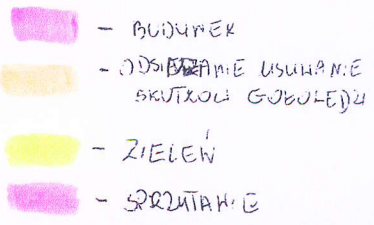 - BUDYNEK
- ODSNIEŻANIE USUWANIE
SKUTKOW GOŁOLEDZI
- ZIELEŃ
- SPRZĄTANIE